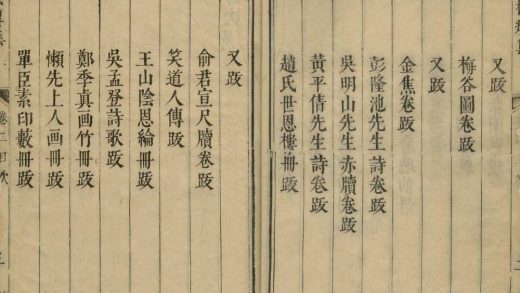 又跋
梅谷圖卷跋
又跋
金焦卷跋
彭隆池先生詩卷跋
吳明山先生赤牘卷跋
黃平倩先生詩卷跋
趙氏世恩樓冊跋
又跋
俞君宣尺牘卷跋
笑道人傳跋
王山陰恩綸冊跋
吳孟登詩歌跋
鄭季真画竹冊跋
懶先上人画冊跋
單臣素印藪冊跋
卷二目次
三